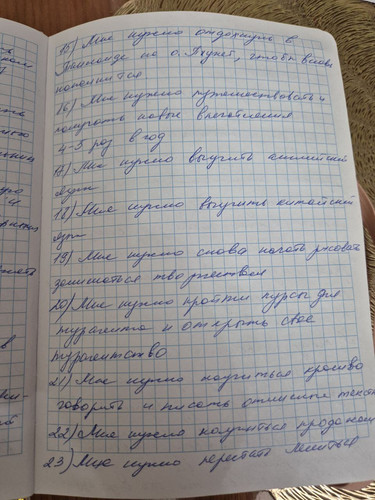 15) Мне нужно отдохнуть в
Таиланде на о. Пхукет, чтобы вновь
наполниться
16) Мне нужно путешествовать и
получать новые впечатления
4-5 раз в год
17) Мне нужно выучить английский
язык
18) Мне нужно выучить китайский
язык
19) Мне нужно снова начать рисовать
заниматься творчеством
20) Мне нужно пройти курсы для
турагента и открыть свое
турагентство
21) Мне нужно научиться красиво
говорить и писать
22) Мне нужно научиться продажам
23) Мне нужно перестать лениться